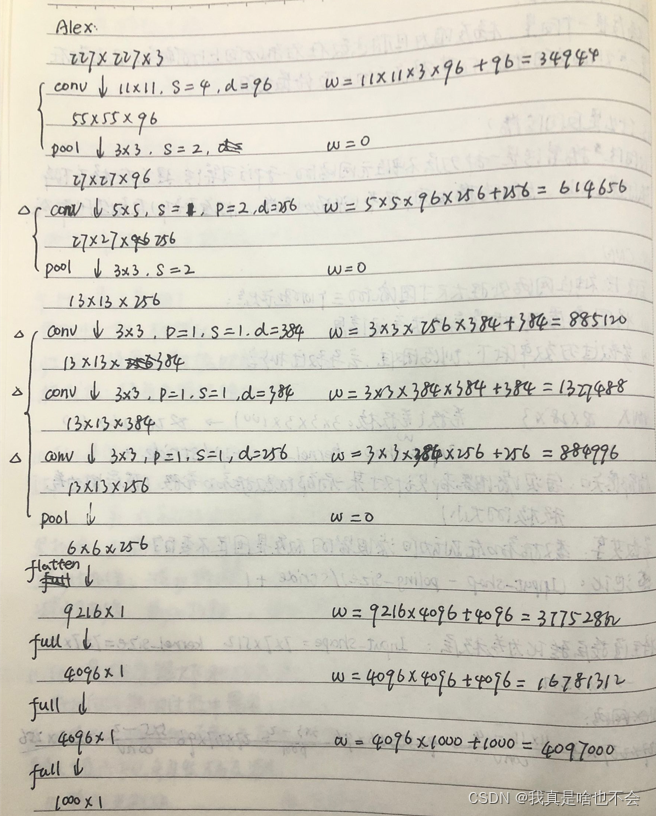 Alex:
227×227×3
conv ↓ 11×11, S=4, d=96 w=11×11×3×96+96=34944
55×55×96
pool ↓ 3×3, S=2, w=0
27×27×96
△ conv ↓ 5×5, S=1, P=2, d=256 w=5×5×96×256+256=614656
27×27×256
pool ↓ 3×3, S=2 w=0
13×13×256
△ conv ↓ 3×3, P=1, S=1, d=384 w=3×3×256×384+384=885120
13×13×384
△ conv ↓ 3×3, P=1, S=1, d=384 w=3×3×384×384+384=1327488
13×13×384
△ conv ↓ 3×3, P=1, S=1, d=256 w=3×3×384×256+256=884996
13×13×256
pool ↓ w=0
6×6×256
flatten ↓
9216×1 w=9216×4096+4096=37752862
full ↓
4096×1 w=4096×4096+4096=16781312
full ↓
4096×1 w=4096×1000+1000=4097000
full ↓
1000×1
CSDN @我真是啥也不会